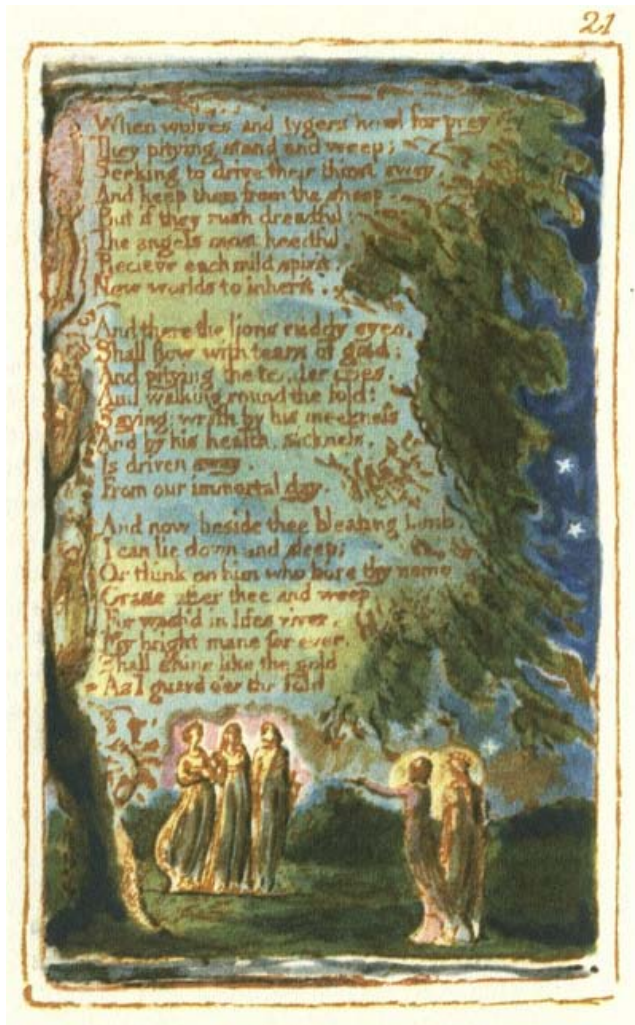 21
When wolves and tygers howl for prey
They pitying stand and weep;
Seeking to drive their thirst away,
And keep them from the sheep.
But if they rush dreadful;
The angels most heedful,
Recieve each mild spirit,
New worlds to inherit.
And there the lions ruddy eyes,
Shall flow with tears of gold:
And pitying the tender cries,
And walking round the fold:
Saying: wrath by his meekness
And by his health, sickness,
Is driven away,
From our immortal day.
And now beside thee bleating lamb,
I can lie down and sleep;
Or think on him who bore thy name
Grase after thee and weep.
For wash'd in lifes river,
My bright mane for ever,
Shall shine like the gold
As I guard o'er the fold